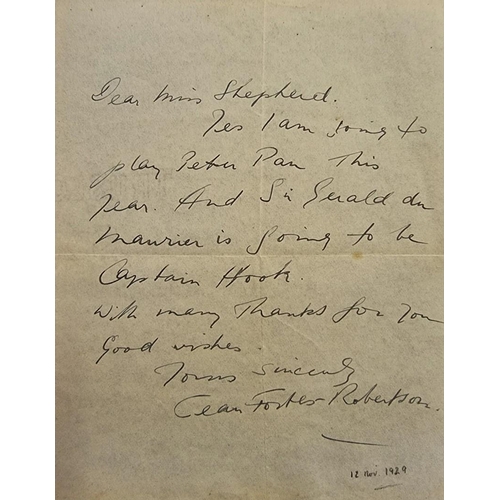 Dear Miss Shepherd.
Yes I am going to
play Peter Pan This
year. And Sir Gerald du
Maurier is going to be
Captain Hook.
With many Thanks for you
Good wishes.
Yours Sincerely
Jean Forbes-Robertson.
12 Nov. 1929